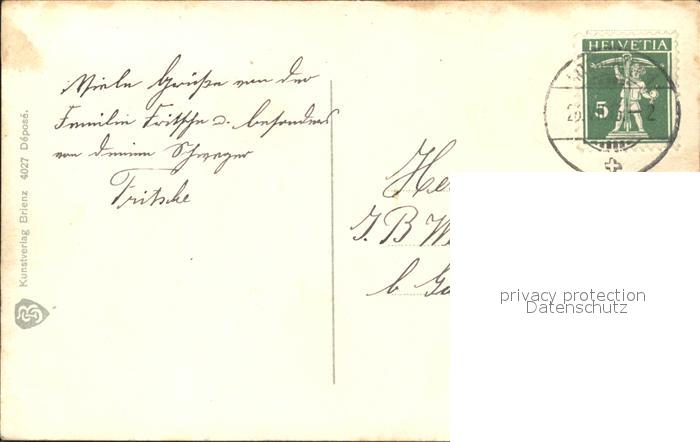 Viele Grüße von der
Familie Fritsche u. besonders
von deinem Schwager
Fritsche
Kunstverlag Brienz 4027 Déposé.
HELVETIA
5
J. B W
b
privacy protection
Datenschutz